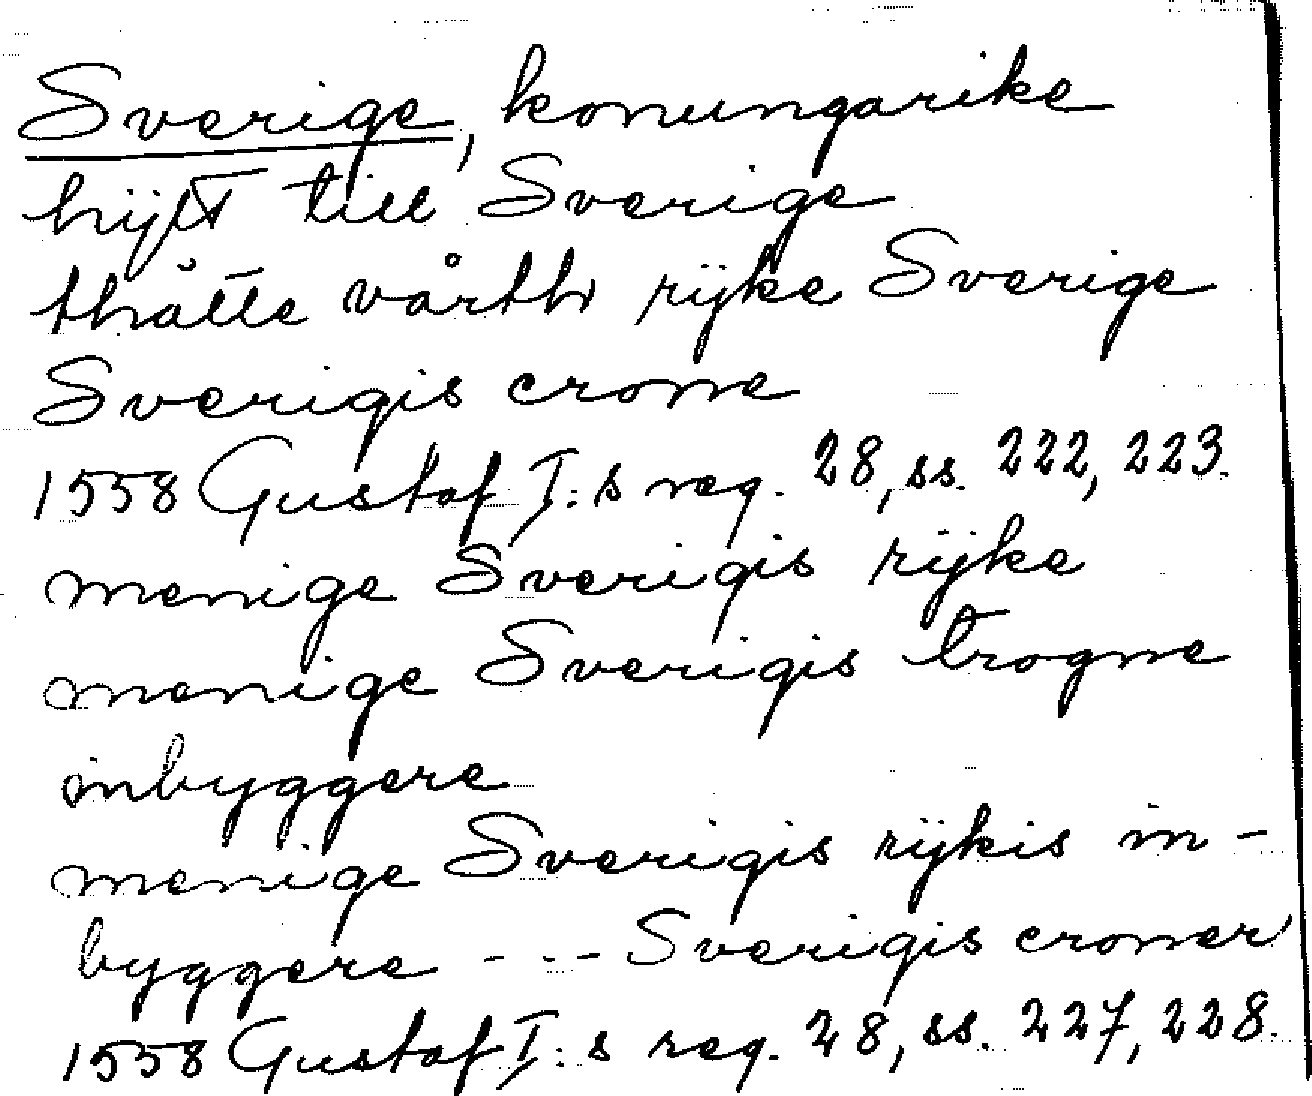 Sverige, konungarike
hijtt till Sverige
thåtte vårth rijke Sverige
Sverigis crone
1558 Gustaf I:s reg. 28, ss. 222, 223.
menige Sverigis rijke
menige Sverigis trogne
inbyggere
menige Sverigis rijkis in-
byggere --- Sverigis croner
1558 Gustaf I:s reg. 28, ss. 227, 228.